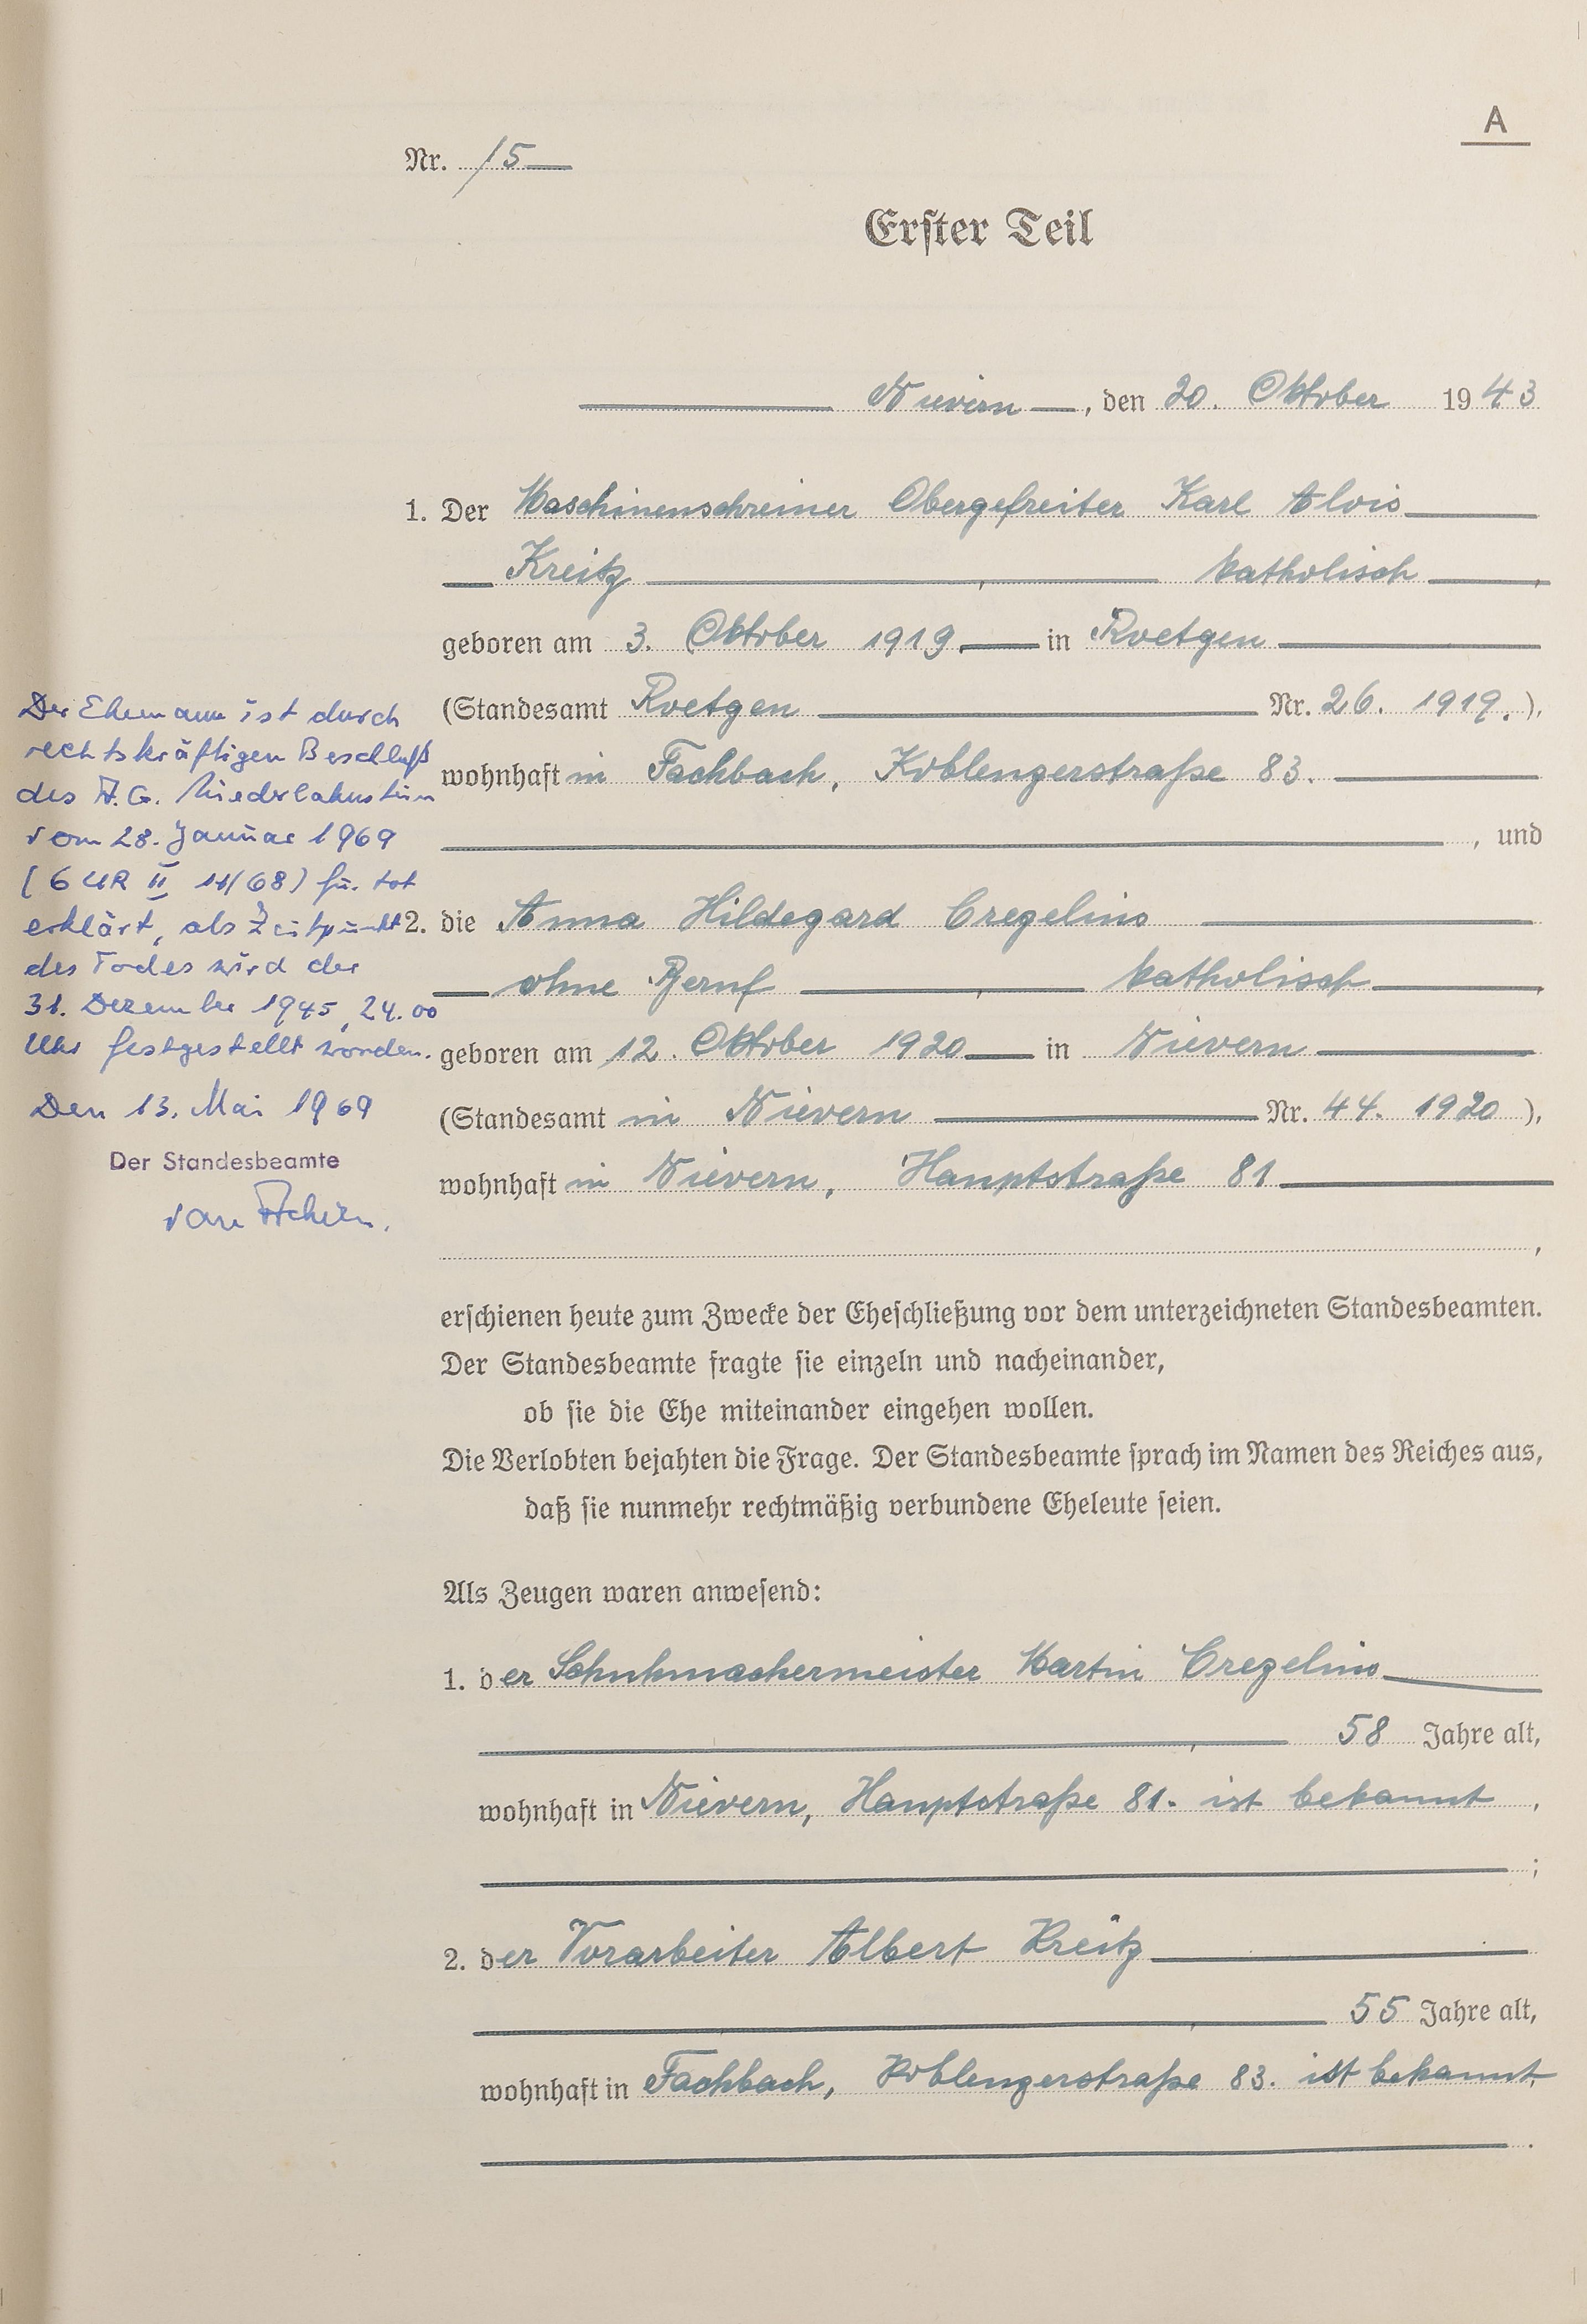 A
Nr. 15
Erster Teil
Nievern, den 20. Oktober 1943
1. Der Maschinenschreiner Obergefreiter Karl Alois
Kreitz, katholisch,
geboren am 3. Oktober 1919 in Roetgen
(Standesamt Roetgen Nr. 26. 1919.),
wohnhaft in Fachbach, Koblenzerstraße 83.
, und
2. die Anna Hildegard Cregelius
ohne Beruf, katholisch,
geboren am 12. Oktober 1920 in Nievern
(Standesamt in Nievern Nr. 44. 1920),
wohnhaft in Nievern, Hauptstraße 81
,
erschienen heute zum Zwecke der Eheschließung vor dem unterzeichneten Standesbeamten.
Der Standesbeamte fragte sie einzeln und nacheinander,
ob sie die Ehe miteinander eingehen wollen.
Die Verlobten bejahten die Frage. Der Standesbeamte sprach im Namen des Reiches aus,
daß sie nunmehr rechtmäßig verbundene Eheleute seien.
Als Zeugen waren anwesend:
1. der Schuhmachermeister Martin Cregelius
, 58 Jahre alt,
wohnhaft in Nievern, Hauptstraße 81. ist bekannt,
;
2. der Vorarbeiter Albert Kreitz
, 55 Jahre alt,
wohnhaft in Fachbach, Koblenzerstraße 83. ist bekannt
.
Der Ehemann ist durch
rechtskräftigen Beschluß
des A.G. Niederlahnstein
vom 28. Januar 1969
(6 UR II 11/68) für tot
erklärt, als Zeitpunkt
des Todes wird der
31. Dezember 1945, 24.00
Uhr festgestellt worden.
Den 13. Mai 1969
Der Standesbeamte
van